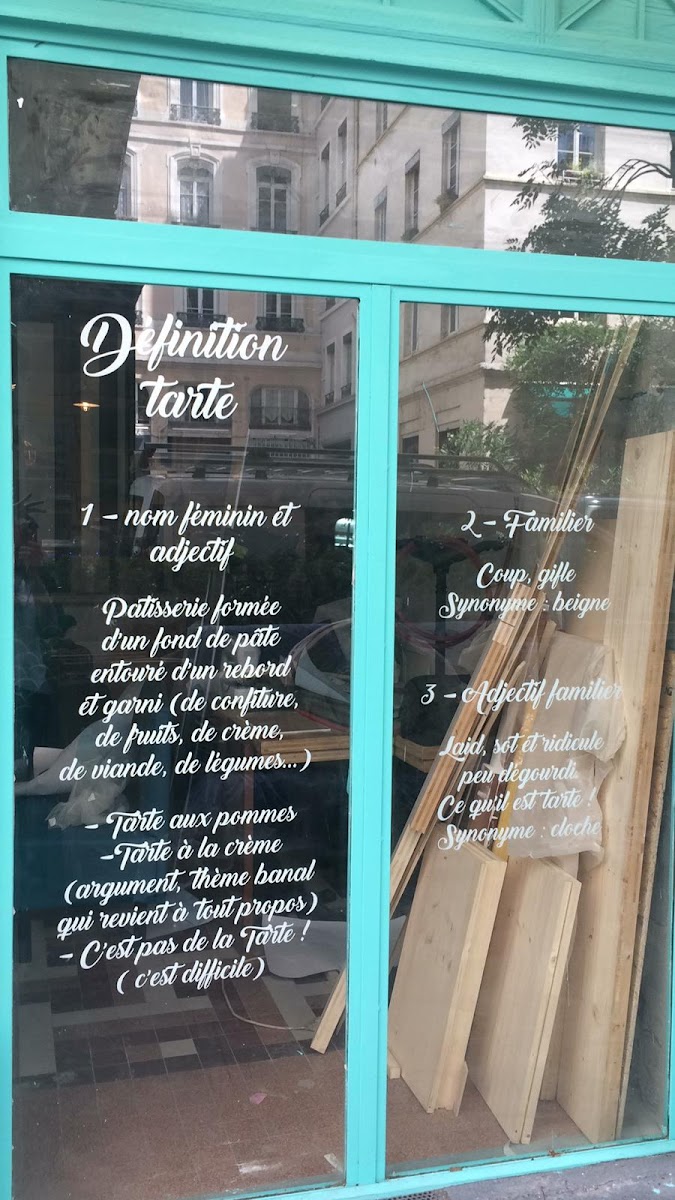 Définition
tarte
1 - nom féminin et
adjectif
Patisserie formée
d'un fond de pâte
entouré d'un rebord
et garni (de confiture,
de fruits, de crème,
de viande, de légumes...)
- Tarte aux pommes
-Tarte à la crème
(argument, thème banal
qui revient à tout propos)
- C'est pas de la Tarte !
( c'est difficile)
2 - Familier
Coup, gifle
Synonyme : beigne
3 - Adjectif familier
Laid, sot et ridicule
peu dégourdi
Ce qu'il est tarte !
Synonyme : cloche